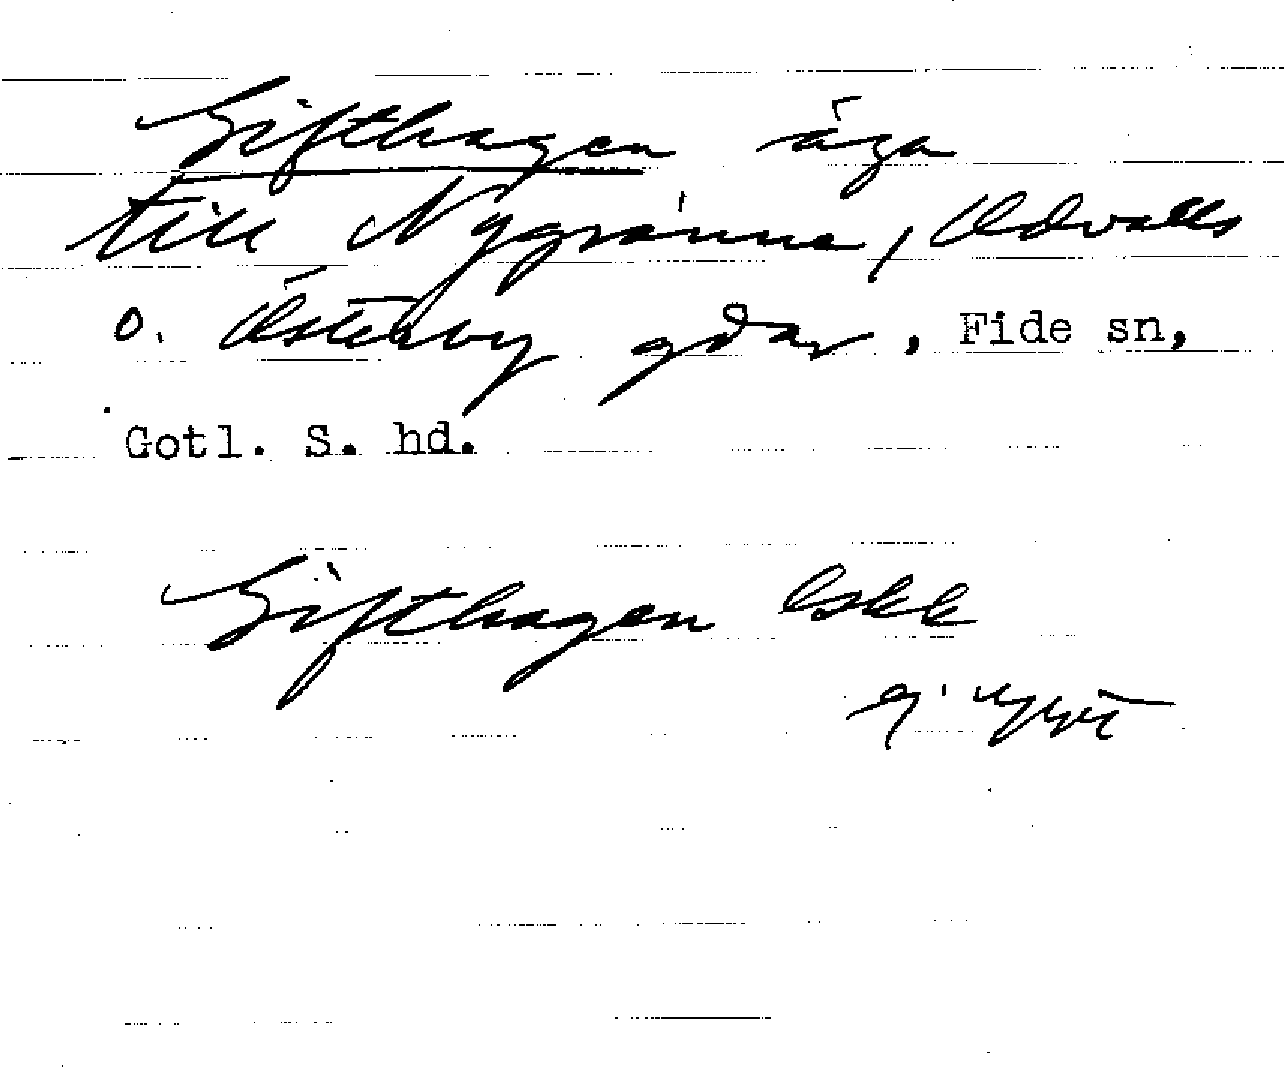 Gifthagen äga
till Nygränne, Odvalls
o. Österby gdar, Fide sn,
Gotl. S. hd.
Gifthagen Eskk
ej uppt